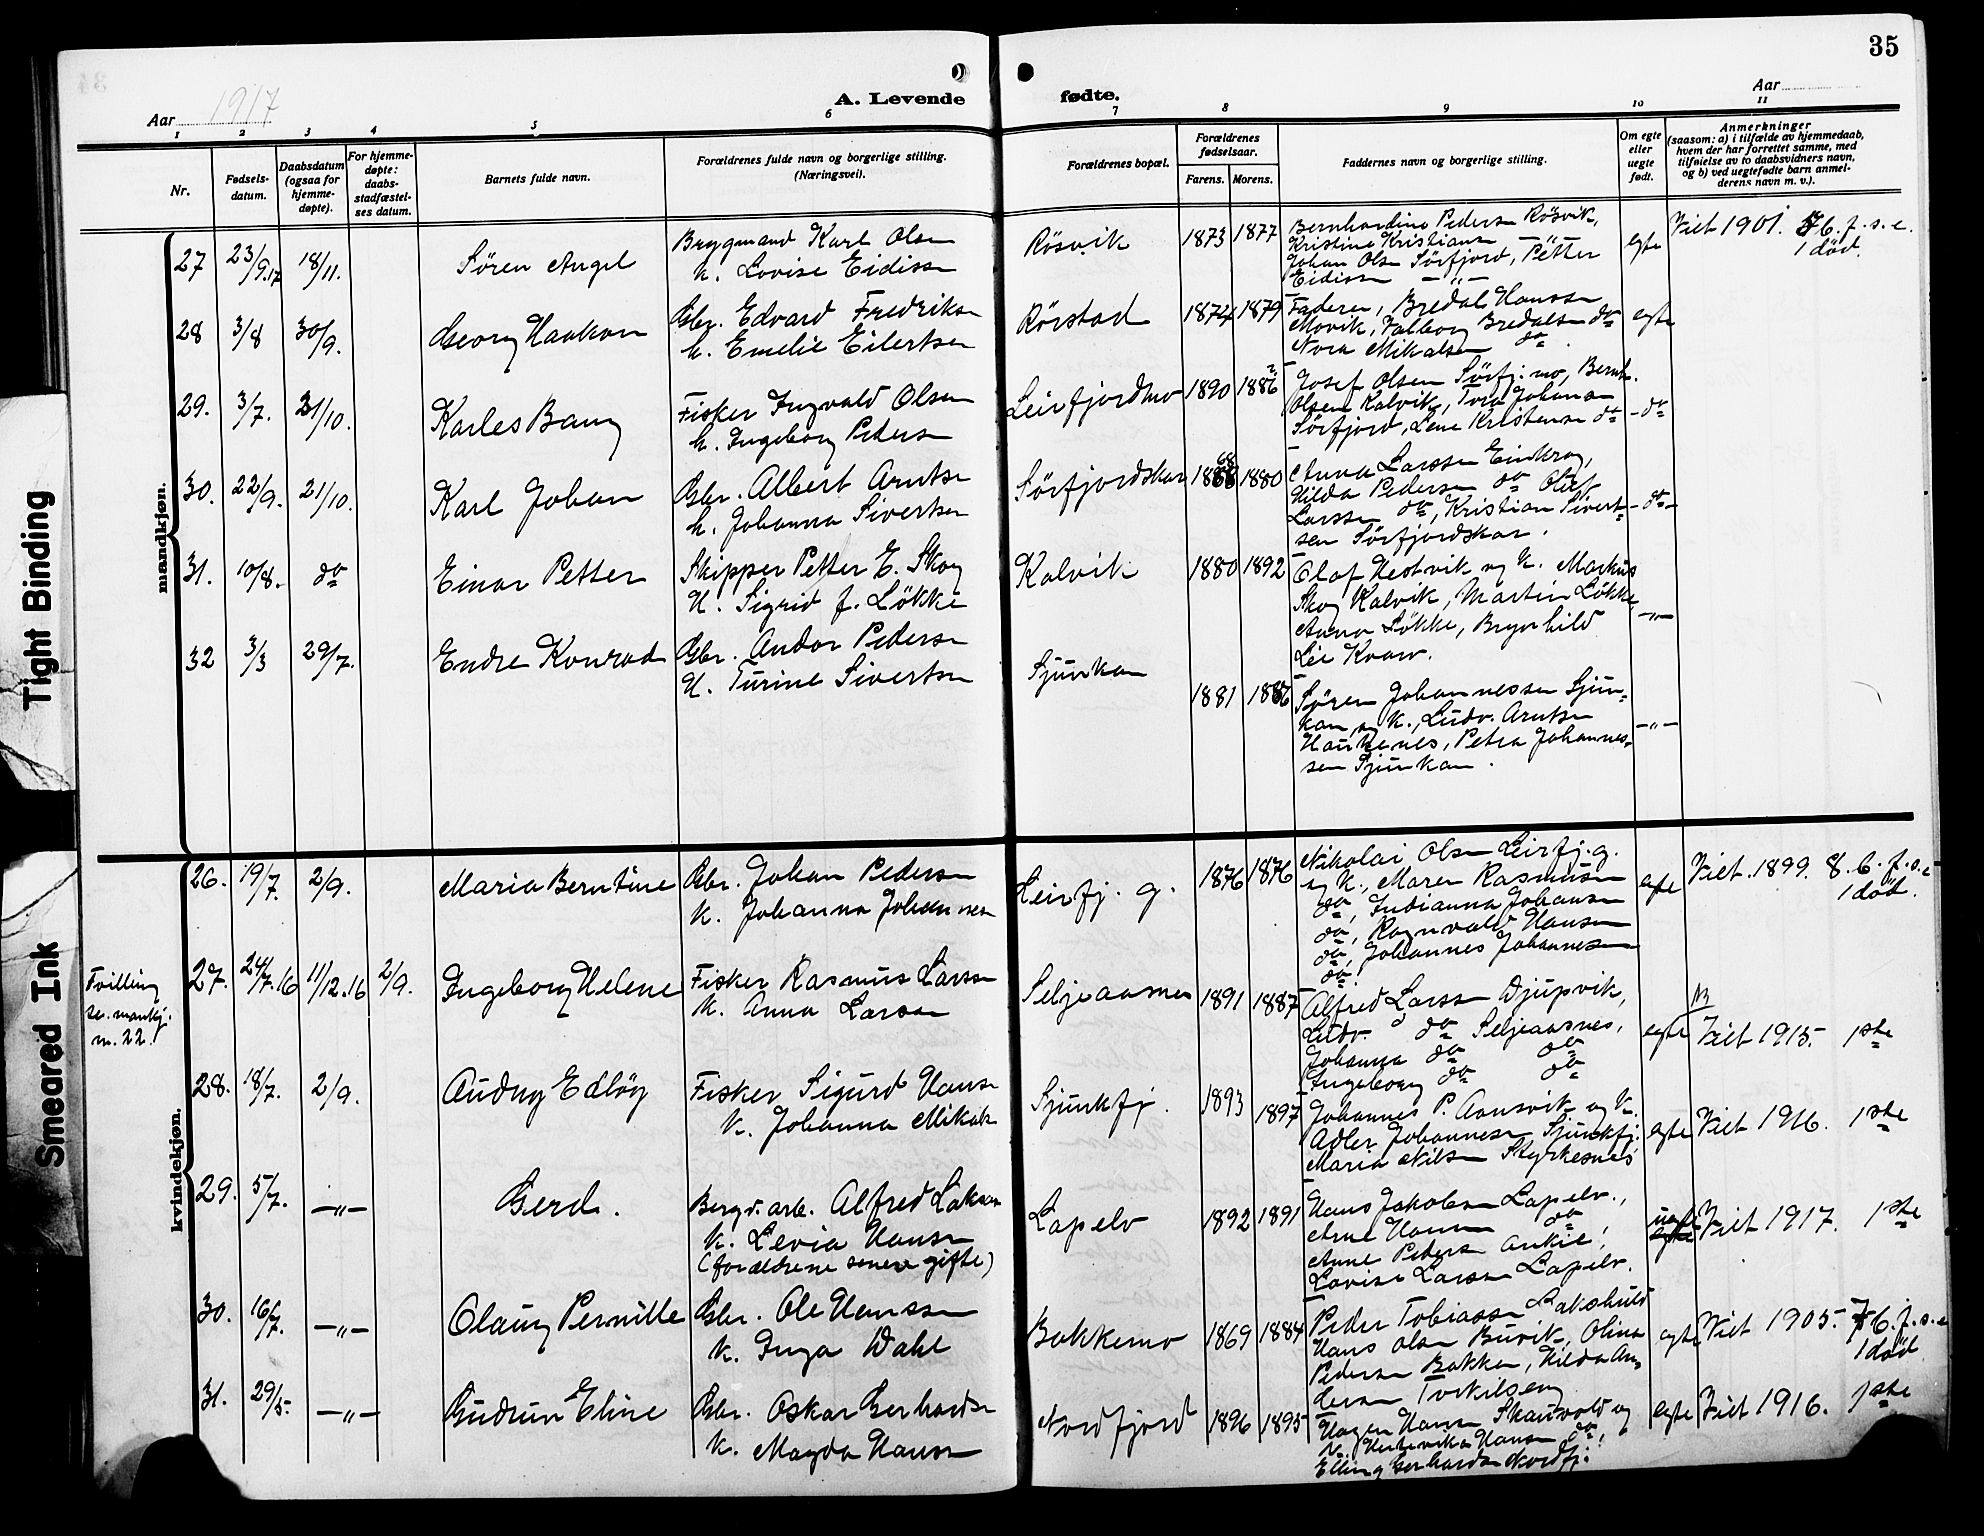 35
Aar 1917
A. Levende
fødte.
Aar
1 2 3 4 5 6 7 8 9 10 11
Nr.
Fødsels-
datum.
Daabsdatum
(ogsaa for
hjemme-
døpte).
For hjemme-
døpte:
daabs-
stadfæstel-
ses datum.
Barnets fulde navn.
Forældrenes fulde navn og borgerlige stilling.
(Næringsvei).
Forældrenes bopæl.
Forældrenes
fødselsaar.
Farens. Morens.
Faddernes navn og borgerlige stilling.
Om egte
eller
uegte
født.
Anmerkninger
(saasom: a) i tilfælde av hjemmedaab,
hvem der har forrettet samme, med
tilføielse av to daabsvidners navn,
og b) ved uegtefødte barn anmel-
derens navn m. v.).
mandkjøn.
27 23/9.17 18/11. Søren Angel
Brygmand Karl Olsen
h. Lovise Eidissen
Røsvik 1873 1877
Bernhardine Pedersen Røsvik,
Kristine Kristiansen —"—
Johan Olsen Sørfjord, Petter
Eidissen —"—
egte
Viet 1901. 6. f. s. e.
1 død.
28 3/8 30/9. Georg Haakon
Gbr. Edvard Fredriksen
h. Emelie Eilertsen
Rørstad 1874 1879
Faderen, Bredal Hanssen
Movik, Valborg Bredalsen do
Nora Mikalsen do
egte
29. 3/7. 21/10. Karles Bang
Fisker Ingvald Olsen
h. Ingeborg Pedersen
Leirfjordmo 1890 1886
Josef Olsen Sørfj: mo, Bernh.
Olsen Kalvik, Tora Johansen
Sørfjord, Lene Kristensen do
-do-
30. 22/9. 21/10. Karl Johan
Gbr. Albert Arntsen
h. Johanna Sivertsen
Sørfjordskar 1888 1880
Anna Larssen Einkrog,
Hilda Pedersen do Olaf
Larssen do, Kristian Sivert-
sen Sørfjordskar.
-do-
31. 10/8. do Einar Petter
Skipper Petter E. Skog
H. Sigrid f. Løkke
Kalvik 1880 1892
Olaf Hestvik og h. Markus
Skog Kalvik, Martin Løkke
Anna Løkke, Brynhild
Lie Kvarv.
—"—
32 3/3 29/7. Endre Konrad
Gbr. Andor Pedersen
H. Turine Sivertsen
Sjunkan
1881 1886
Søren Johannessen Sjun-
kan og h., Ludv. Arntsen
Haukenes, Petra Johannes-
sen Sjunkan.
—"—
kvindekjøn.
26. 19/7. 2/9. Maria Berntine
Gbr. Johan Pedersen
h. Johanna Johannesen
Leirfj. g. 1876 1876
Nikolai Olsen Leirfj. g.
og h., Maren Rasmussen
do, Indianna Johansen
do, Ragnvald Hansen
do, Johannes Johannesen
do
egte
Viet 1899. 8. b. f. s. e
1 død.
Tvilling
se. mankj.
nr. 22.
27. 24/7.16 11/12.16 2/9. Ingeborg Helene
Fisker Rasmus Larsen
h. Anna Larsen
Seljeaasnes 1891 1887
Alfred Larssen Djupvik,
Ludv. do Seljeaasnes,
Johanna do do
Ingeborg do do
egte Viet 1915. 1ste
28. 18/7. 2/9. Audny Edløg
Fisker Sigurd Hansen
h. Johanna Mikalsen
Sjunkfj. 1893 1897
Johannes P. Aansvik og h.
Adler Johannesen Sjunkfj.
Maria Nilsen Styrkesnes
egte Viet 1916. 1ste
29. 5/7. —"— Gerd.
Bergv. arb. Alfred Laksen
h. Levia Hansen
(forældrene senere gifte)
Lapelv 1892 1891
Hans Jakobsen Lapelv.,
Arne Hansen do
Anne Pedersen Ankie,
Lovise Larsen Lapelv.
uegte
egte
Viet 1917. 1ste
30. 16/7. —"— Olaug Pernille
Gbr. Ole Hanssen
h. Inga Dahl
Bakkemo 1869 1884
Peder Tobiassen Lakshuld
Hans Olsen Buvik, Olina
Pedersen Bakken, Hilda An-
dersen Torkilseng
egte Viet 1905. 7 b. f. s. e
1 død
31. 29/5. —"— Gudrun Eline
Gbr. Oskar Gerhardsen
h. Magda Hansen
Nordfjord 1896 1895
Hagen Hansen Skauvold og
h. Hansen do,
Elling Gerhardsen Nordfj.
egte Viet 1916. 1ste
Tight Binding
Smeared Ink